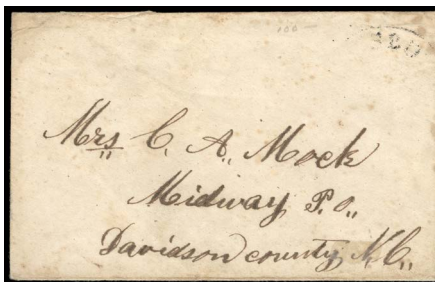 100
Mrs C. A. Mock
Midway P.O.
Davidson county N.C.